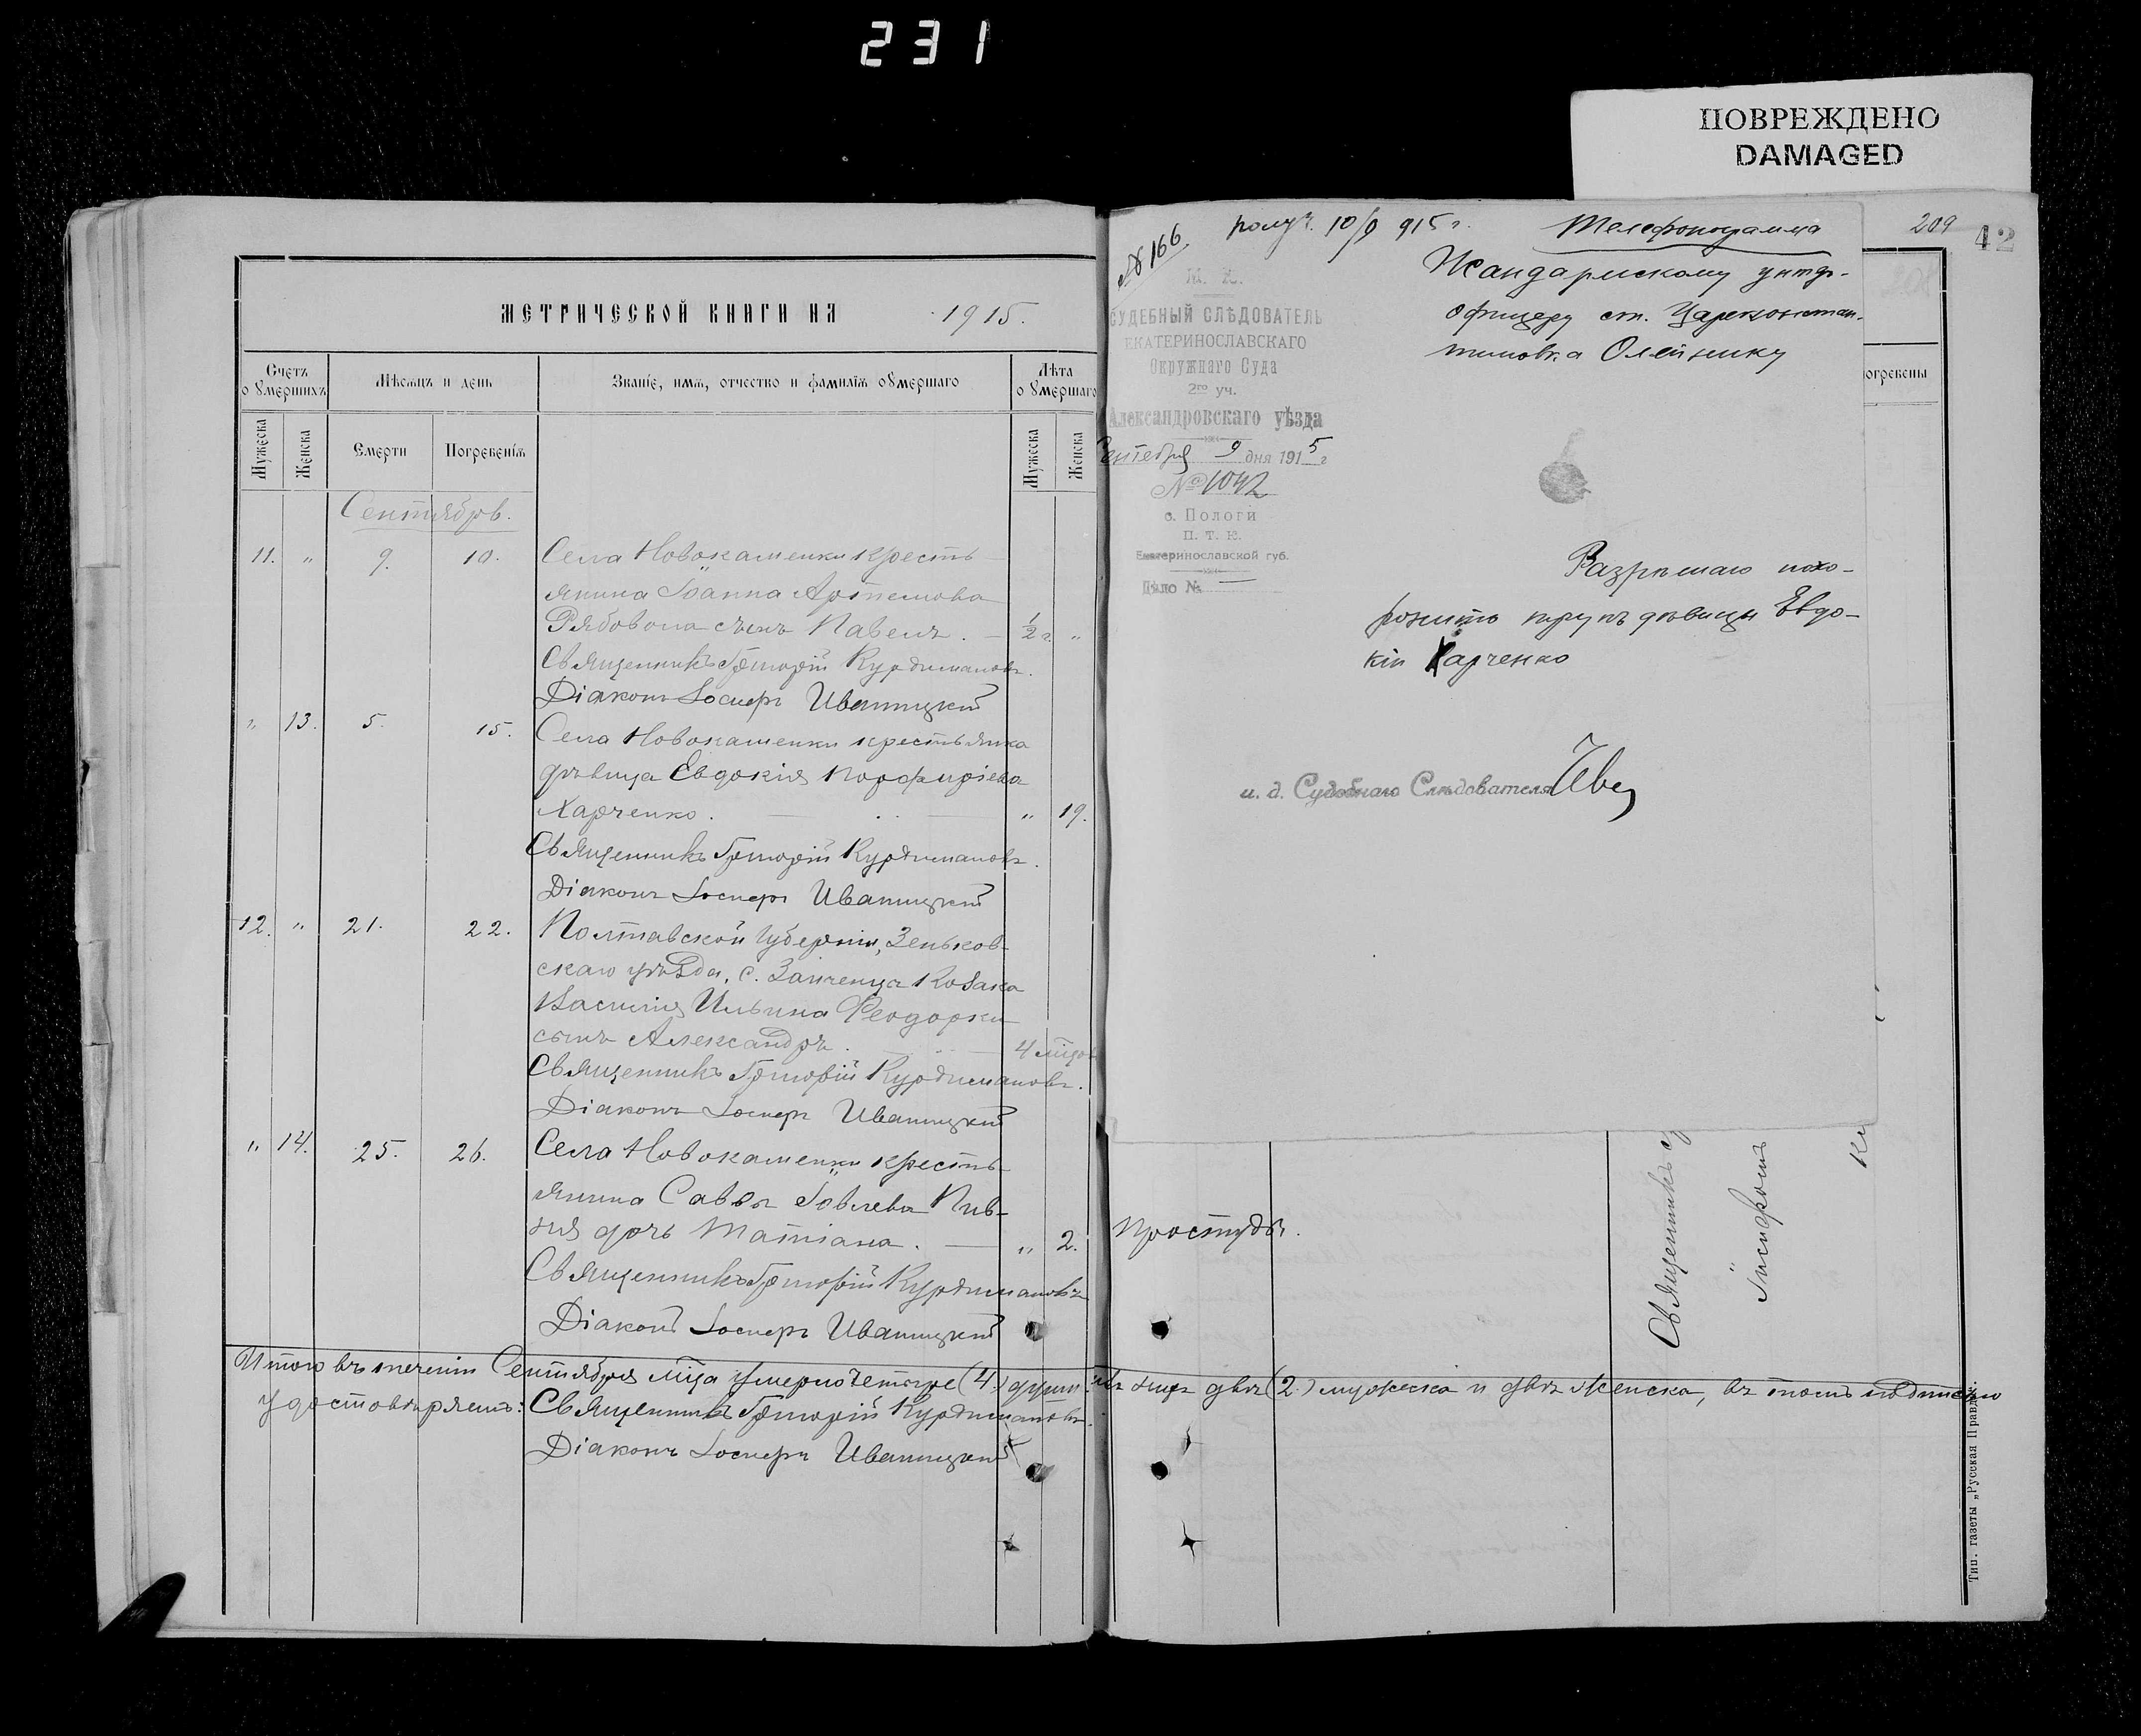 231
ПОВРЕЖДЕНО
DAMAGED
МЕТРИЧЕСКОЙ КНИГИ НА 1915.
Счетъ
оумершихъ
Мѣсяцъ и день
Званіе, имя, отчество и фамилія оумершаго
Лѣта
оумершаго
Мужеска
Женска
Смерти
Погребенія
Мужеска
Женска
Сентябрь.
11. " 9. 10. Села Новокаменки кресть-
янина Іоанна Артемова
Рябовола сынъ Павелъ. — 1/2 г. "
Священникъ Григорій Курдимановъ.
Діаконъ Іосифъ Иваницкій
" 13. 5. 15. Села Новокаменки крестьянка
дѣвица Евдокія Порфиріева
Харченко. — " 19.
Священникъ Григорій Курдимановъ.
Діаконъ Іосифъ Иваницкій
12. " 21. 22. Полтавской губерніи, Зеньков-
скаго уѣзда, с. Заиченца Козака
Василія Ильина Феодорки
сынъ Александръ. — 4 мцов
Священникъ Григорій Курдимановъ.
Діаконъ Іосифъ Иваницкій
" 14. 25. 26. Села Новокаменки кресть-
янина Саввы Іовлева Пив-
ня дочь Татіана. — " 2.
Священникъ Григорій Курдимановъ
Діаконъ Іосифъ Иваницкій
Итого въ теченіи Сентября мца умерло четыре (4) души: въ числѣ двѣ (2) мужеска и двѣ женска, въ томъ подписью
удостовѣряемъ: Священникъ Григорій Курдимановъ.
Діаконъ Іосифъ Иваницкій
209
42
№ 166
получ. 10/9 915 г.
Телефонограмма
Жандармскому унтр-
офицеру ст. Царевконстан-
тиновка Олейнику
М. Ю.
СУДЕБНЫЙ СЛѢДОВАТЕЛЬ
ЕКАТЕРИНОСЛАВСКАГО
Окружнаго Суда
2го уч.
Александровскаго уѣзда
Сентября 9 дня 1915 г
№ 1042
с. Пологи
П. Т. К.
Екатеринославской губ.
Дѣло № —
Разрѣшаю похо-
ронить трупъ дѣвицы Евдо-
кіи Харченко
и. д. Судебнаго Слѣдователя
погребены
Простуды.
Священникъ
Іосифомъ
Тип. газеты „Русская Правда".